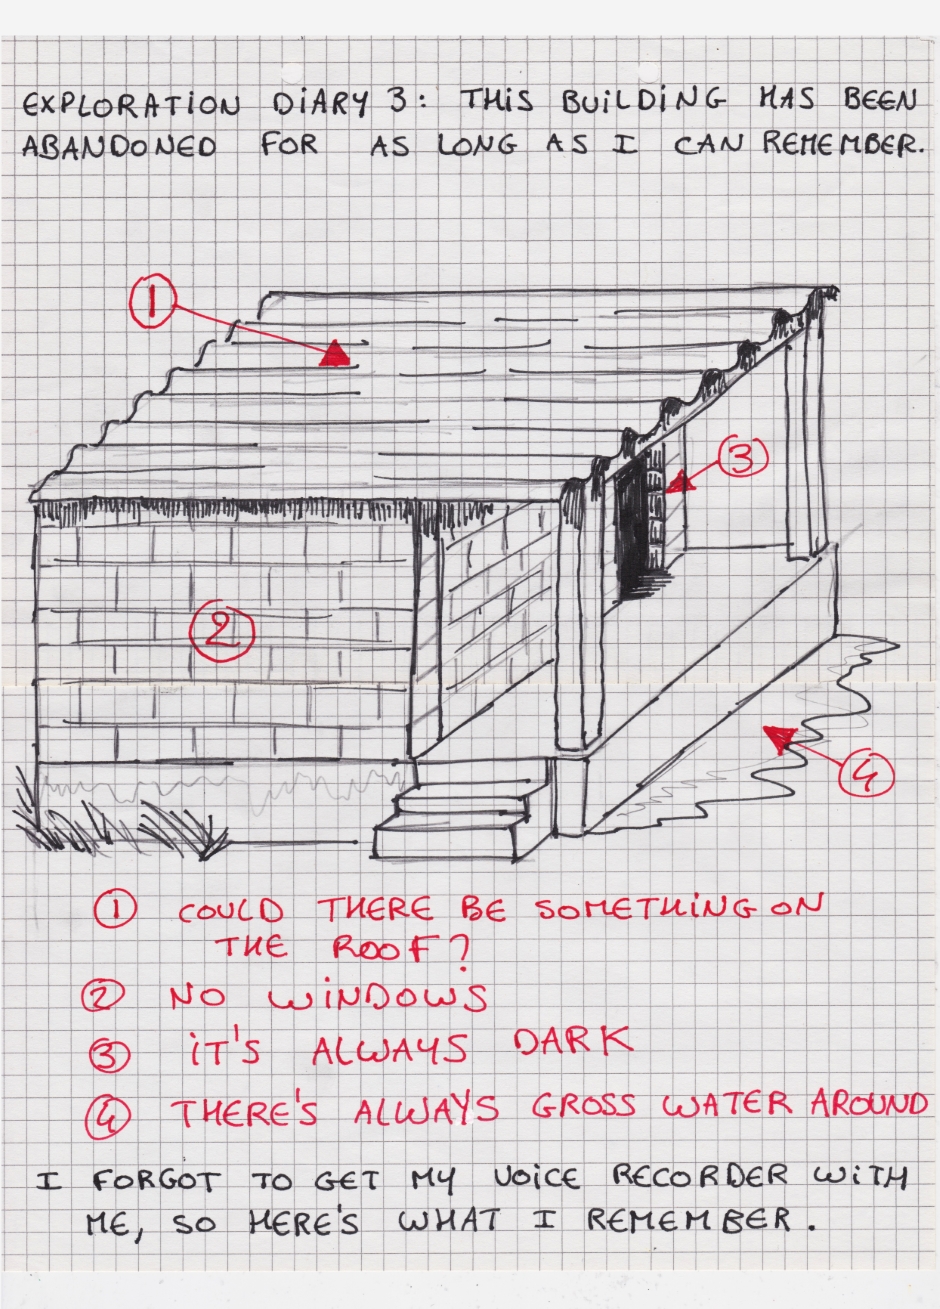 EXPLORATION DIARY 3: THIS BUILDING HAS BEEN
ABANDONED FOR AS LONG AS I CAN REMEMBER.
1
3
2
4
1 COULD THERE BE SOMETHING ON
THE ROOF?
2 NO WINDOWS
3 IT'S ALWAYS DARK
4 THERE'S ALWAYS GROSS WATER AROUND
I FORGOT TO GET MY VOICE RECORDER WITH
ME, SO HERE'S WHAT I REMEMBER.